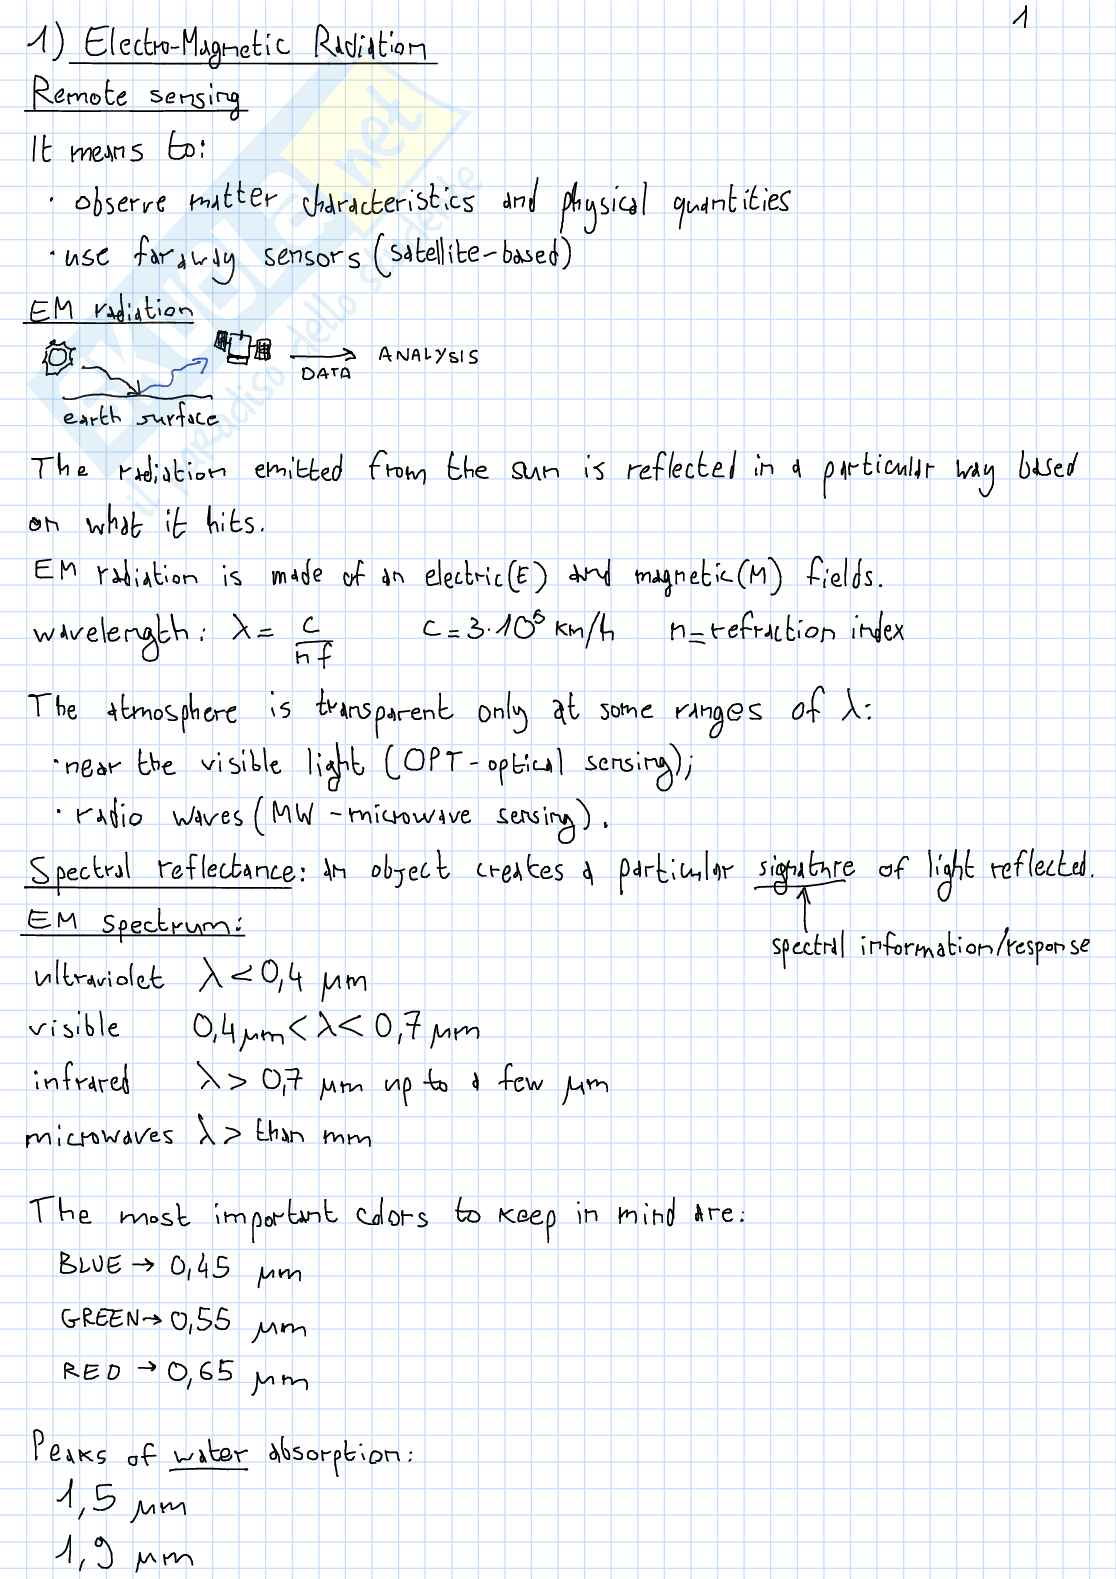 1
1) Electro-Magnetic Radiation
Remote sensing
It means to:
· observe matter characteristics and physical quantities
· use faraway sensors (satellite-based)
EM radiation
DATA
ANALYSIS
earth surface
The radiation emitted from the sun is reflected in a particular way based
on what it hits.
EM radiation is made of an electric(E) and magnetic(M) fields.
wavelength: λ = c/nf c = 3·10⁵ km/h n = refraction index
The atmosphere is transparent only at some ranges of λ:
· near the visible light (OPT-optical sensing);
· radio waves (MW-microwave sensing).
Spectral reflectance: an object creates a particular signature of light reflected.
EM Spectrum:
spectral information/response
ultraviolet λ < 0,4 μm
visible 0,4 μm < λ < 0,7 μm
infrared λ > 0,7 μm up to a few μm
microwaves λ > than mm
The most important colors to keep in mind are:
BLUE → 0,45 μm
GREEN → 0,55 μm
RED → 0,65 μm
Peaks of water absorption:
1,5 μm
1,9 μm
SKUOLA.net
il paradiso dello studente